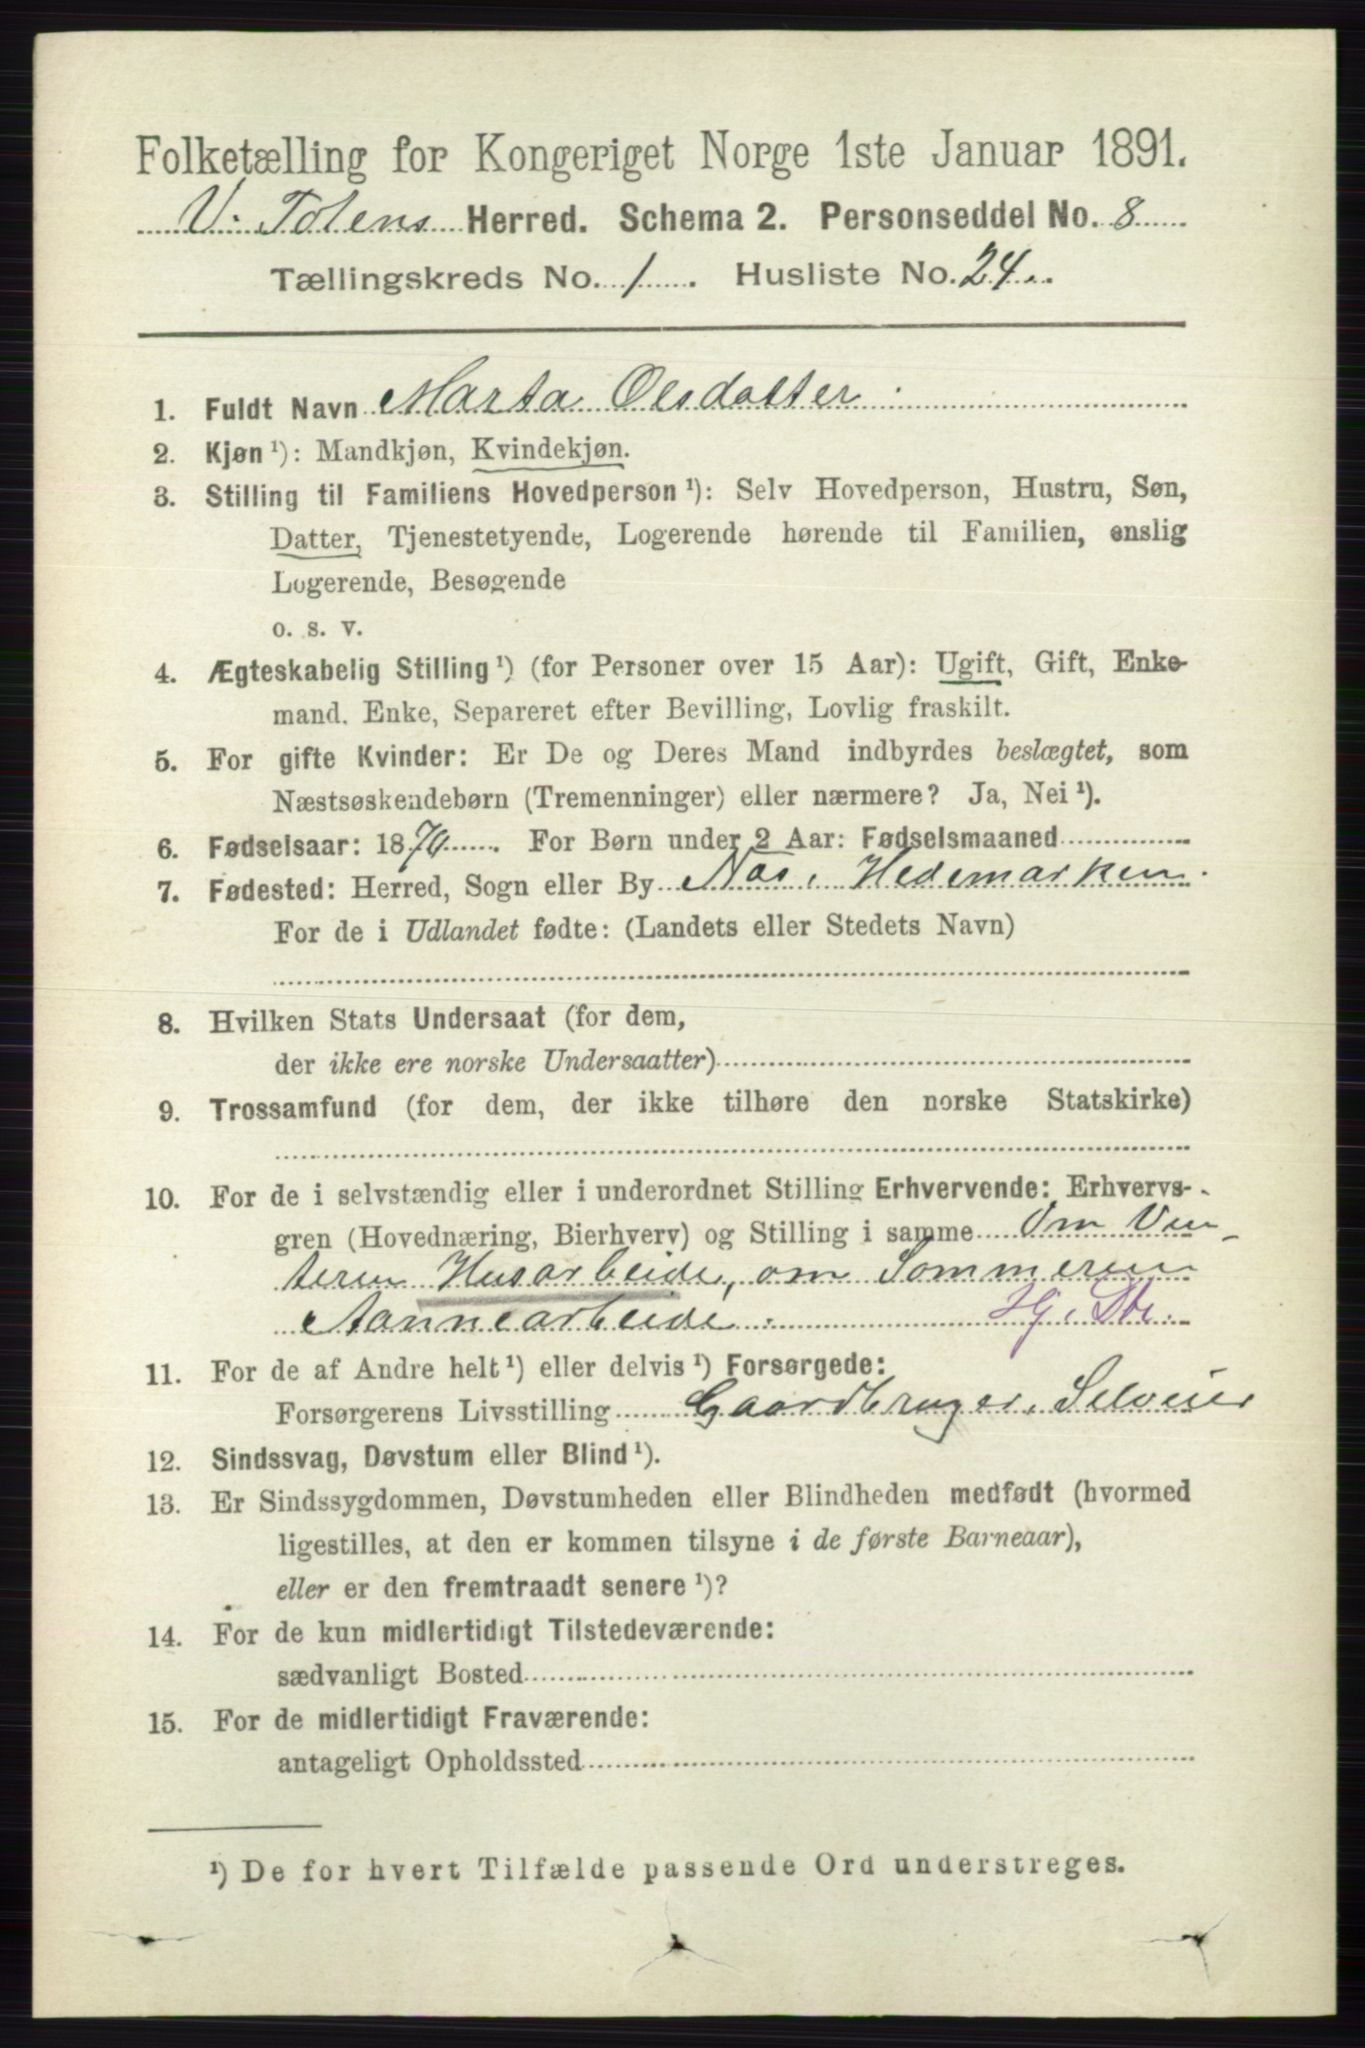 Folketælling for Kongeriget Norge 1ste Januar 1891.
V. Totens Herred. Schema 2. Personseddel No. 8
Tællingskreds No. 1. Husliste No. 24.
1. Fuldt Navn Marta Olsdatter
2. Kjøn¹): Mandkjøn, Kvindekjøn.
3. Stilling til Familiens Hovedperson¹): Selv Hovedperson, Hustru, Søn,
Datter, Tjenestetyende, Logerende hørende til Familien, enslig
Logerende, Besøgende
o. s. v.
4. Ægteskabelig Stilling¹) (for Personer over 15 Aar): Ugift, Gift, Enke-
mand, Enke, Separeret efter Bevilling, Lovlig fraskilt.
5. For gifte Kvinder: Er De og Deres Mand indbyrdes beslægtet, som
Næstsøskendebørn (Tremenninger) eller nærmere? Ja, Nei¹).
6. Fødselsaar: 1870. For Børn under 2 Aar: Fødselsmaaned
7. Fødested: Herred, Sogn eller By Næs, Hedemarken.
For de i Udlandet fødte: (Landets eller Stedets Navn)
8. Hvilken Stats Undersaat (for dem,
der ikke ere norske Undersaatter)
9. Trossamfund (for dem, der ikke tilhøre den norske Statskirke)
10. For de i selvstændig eller i underordnet Stilling Erhvervende: Erhvervs-
gren (Hovednæring, Bierhverv) og Stilling i samme Om Vin-
teren Husarbeide, om Sommeren
Aannearbeide. Hj. Str.
11. For de af Andre helt¹) eller delvis¹) Forsørgede:
Forsørgerens Livsstilling Gaardbruger, Selveier
12. Sindssvag, Døvstum eller Blind¹).
13. Er Sindssygdommen, Døvstumheden eller Blindheden medfødt (hvormed
ligestilles, at den er kommen tilsyne i de første Barneaar),
eller er den fremtraadt senere¹)?
14. For de kun midlertidigt Tilstedeværende:
sædvanligt Bosted
15. For de midlertidigt Fraværende:
antageligt Opholdssted
¹) De for hvert Tilfælde passende Ord understreges.